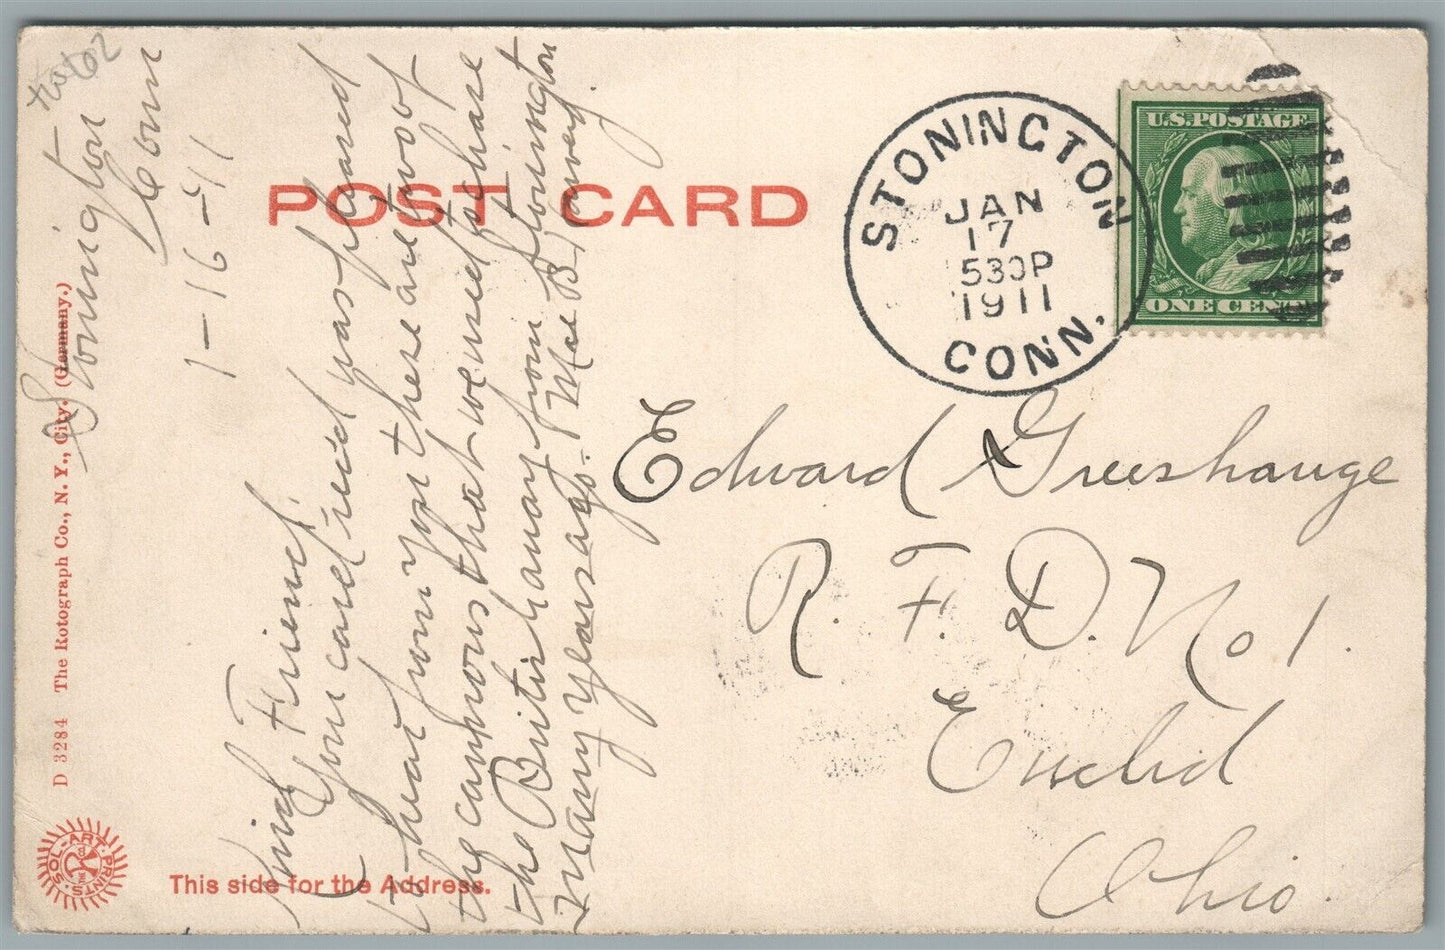 Stonington
Conn
1-16-11
Kind Friend:
Your card rec'd was pleased
to hear from you these are two of
the cannons that we used to chase
the British away from Stonington
many years ago. Mae B.
POST CARD
STONINGTON
JAN
17
530P
1911
CONN.
U.S. POSTAGE
ONE CENT
Edward
R. F. D. No 1.
Euclid
Ohio.
D 3284 The Rotograph Co., N. Y., City. (Germany.)
SOL-ART PRINTS
This side for the Address.